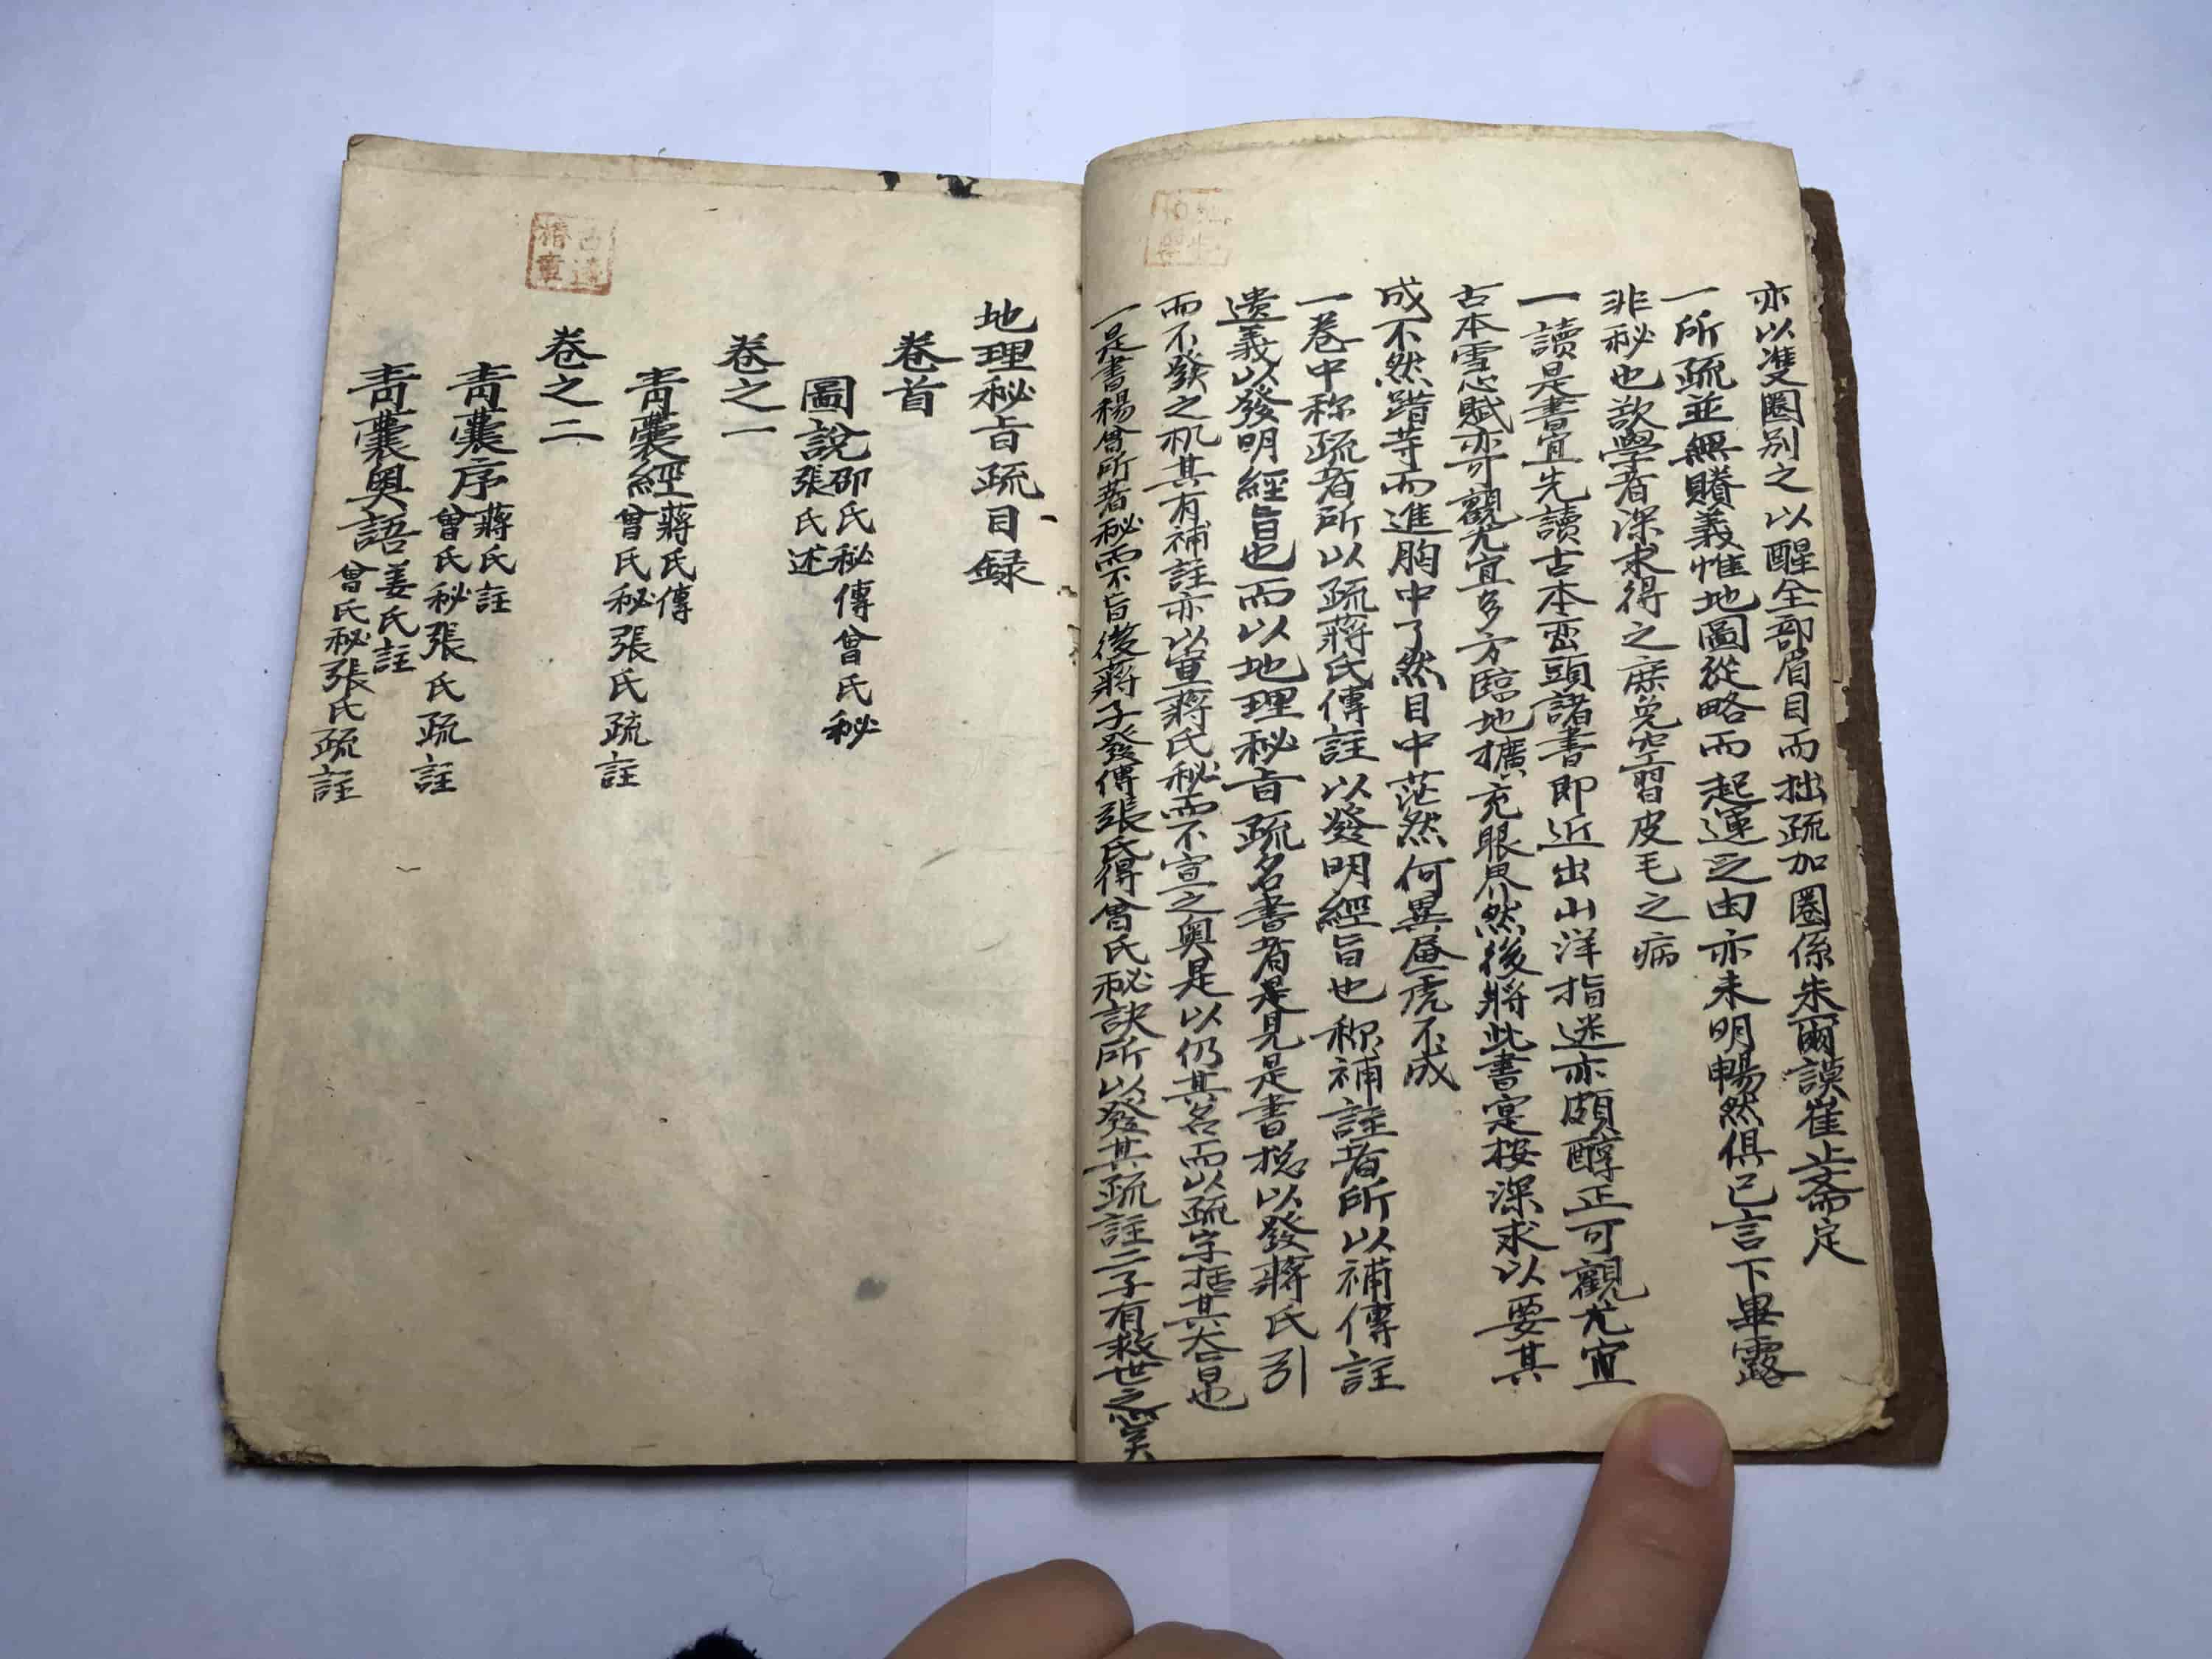 亦以雙圈别之以醒全部眉目而拙疏加圈係朱爾謨崔止齋定
一所疏並無賸義惟地圖從略而起運之由亦未明暢然俱已言下畢露
非秘也欲學者深求得之庶免空習皮毛之病
一讀是書宜先讀古本巒頭諸書即近出山洋指迷亦頗醇正可觀尤宜
古本雪心賦亦可觀尤宜多方臨地擴充眼界然後將此書寔按深求以要其
成不然躐等而進胸中了然目中茫然何異畫虎不成
一卷中称疏者所以疏蔣氏傳註以發明經旨也称補註者所以補傳註
遺義以發明經旨也而以地理秘旨疏名書者是見是書揔以發蔣氏引
而不發之机其有補註亦以宣蔣氏秘而不宣之奥是以仍其名而以疏字括其大旨也
一是書楊曾所著秘而不旨後蔣子發傳張氏得曾氏秘訣所以發其疏註二子有救世之心矣
地理秘旨疏目録
卷首
圖說 邵氏秘傳曾氏秘
張氏述
卷之一
青囊經 蔣氏傳
曾氏秘張氏疏註
卷之二
青囊序 蔣氏註
曾氏秘張氏疏註
青囊奥語 姜氏註
曾氏秘張氏疏註